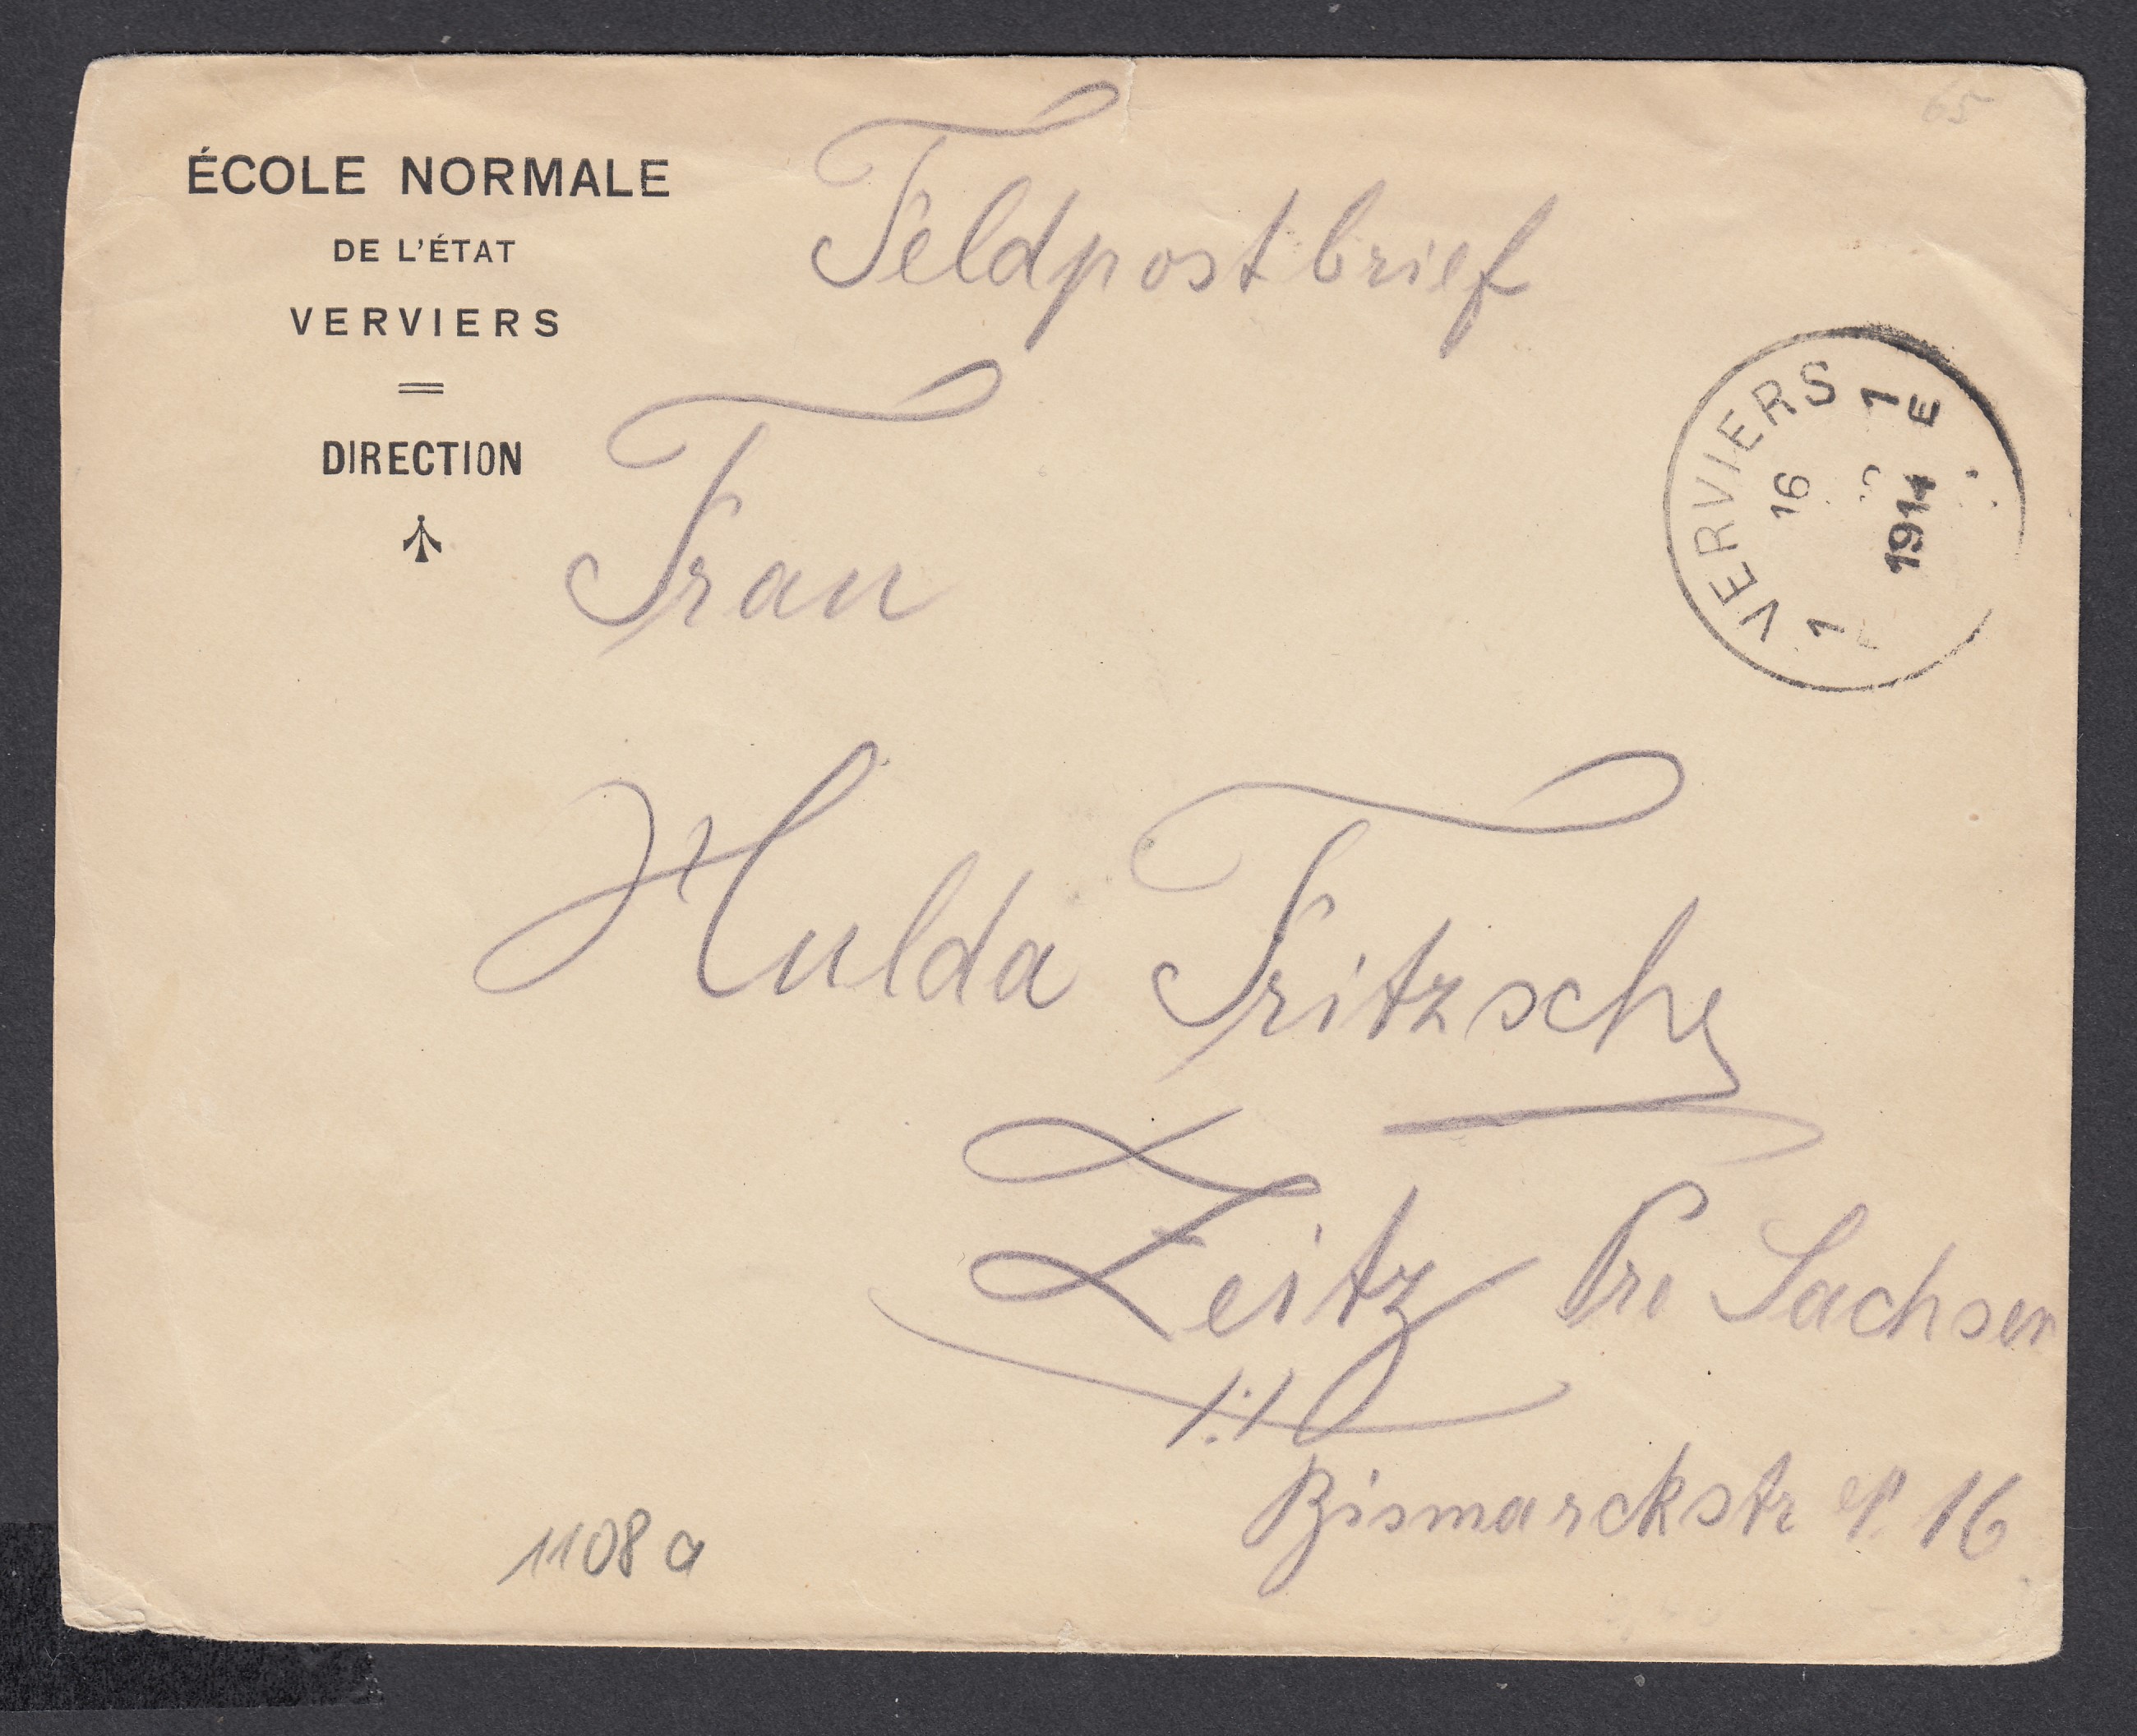 ÉCOLE NORMALE
DE L'ÉTAT
VERVIERS
DIRECTION
Feldpostbrief
65
VERVIERS 1
1 E
16
1914
Frau
Hulda Fritzsche
Zeitz Prv Sachsen
Bismarckstr № 16
1108 a